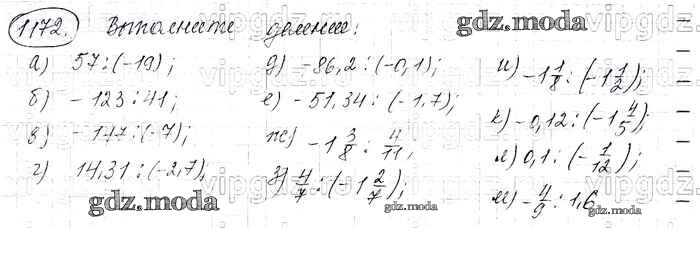 1172. Выполните деление:
gdz.moda
а) 57 : (-19);
б) -123 : 41;
в) -147 : (-7);
г) 14,31 : (-2,7),
gdz.moda
д) -86,2 : (-0,1);
е) -51,34 : (-1,7);
ж) -1 3/8 : 4/11,
з) 4/7 : (-1 2/7);
gdz.moda
и) -1 1/8 : (-1 1/2);
к) -0,12 : (-1 4/5);
л) 0,1 : (-1/12);
м) -4/9 : 1,6
gdz.moda